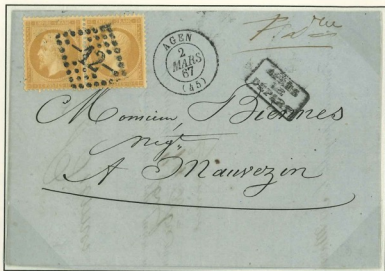 12
AGEN
2
MARS
67
(45)
APRÈS
LE
DÉPART
Monsieur Biennes
Negt
A Mauvezin